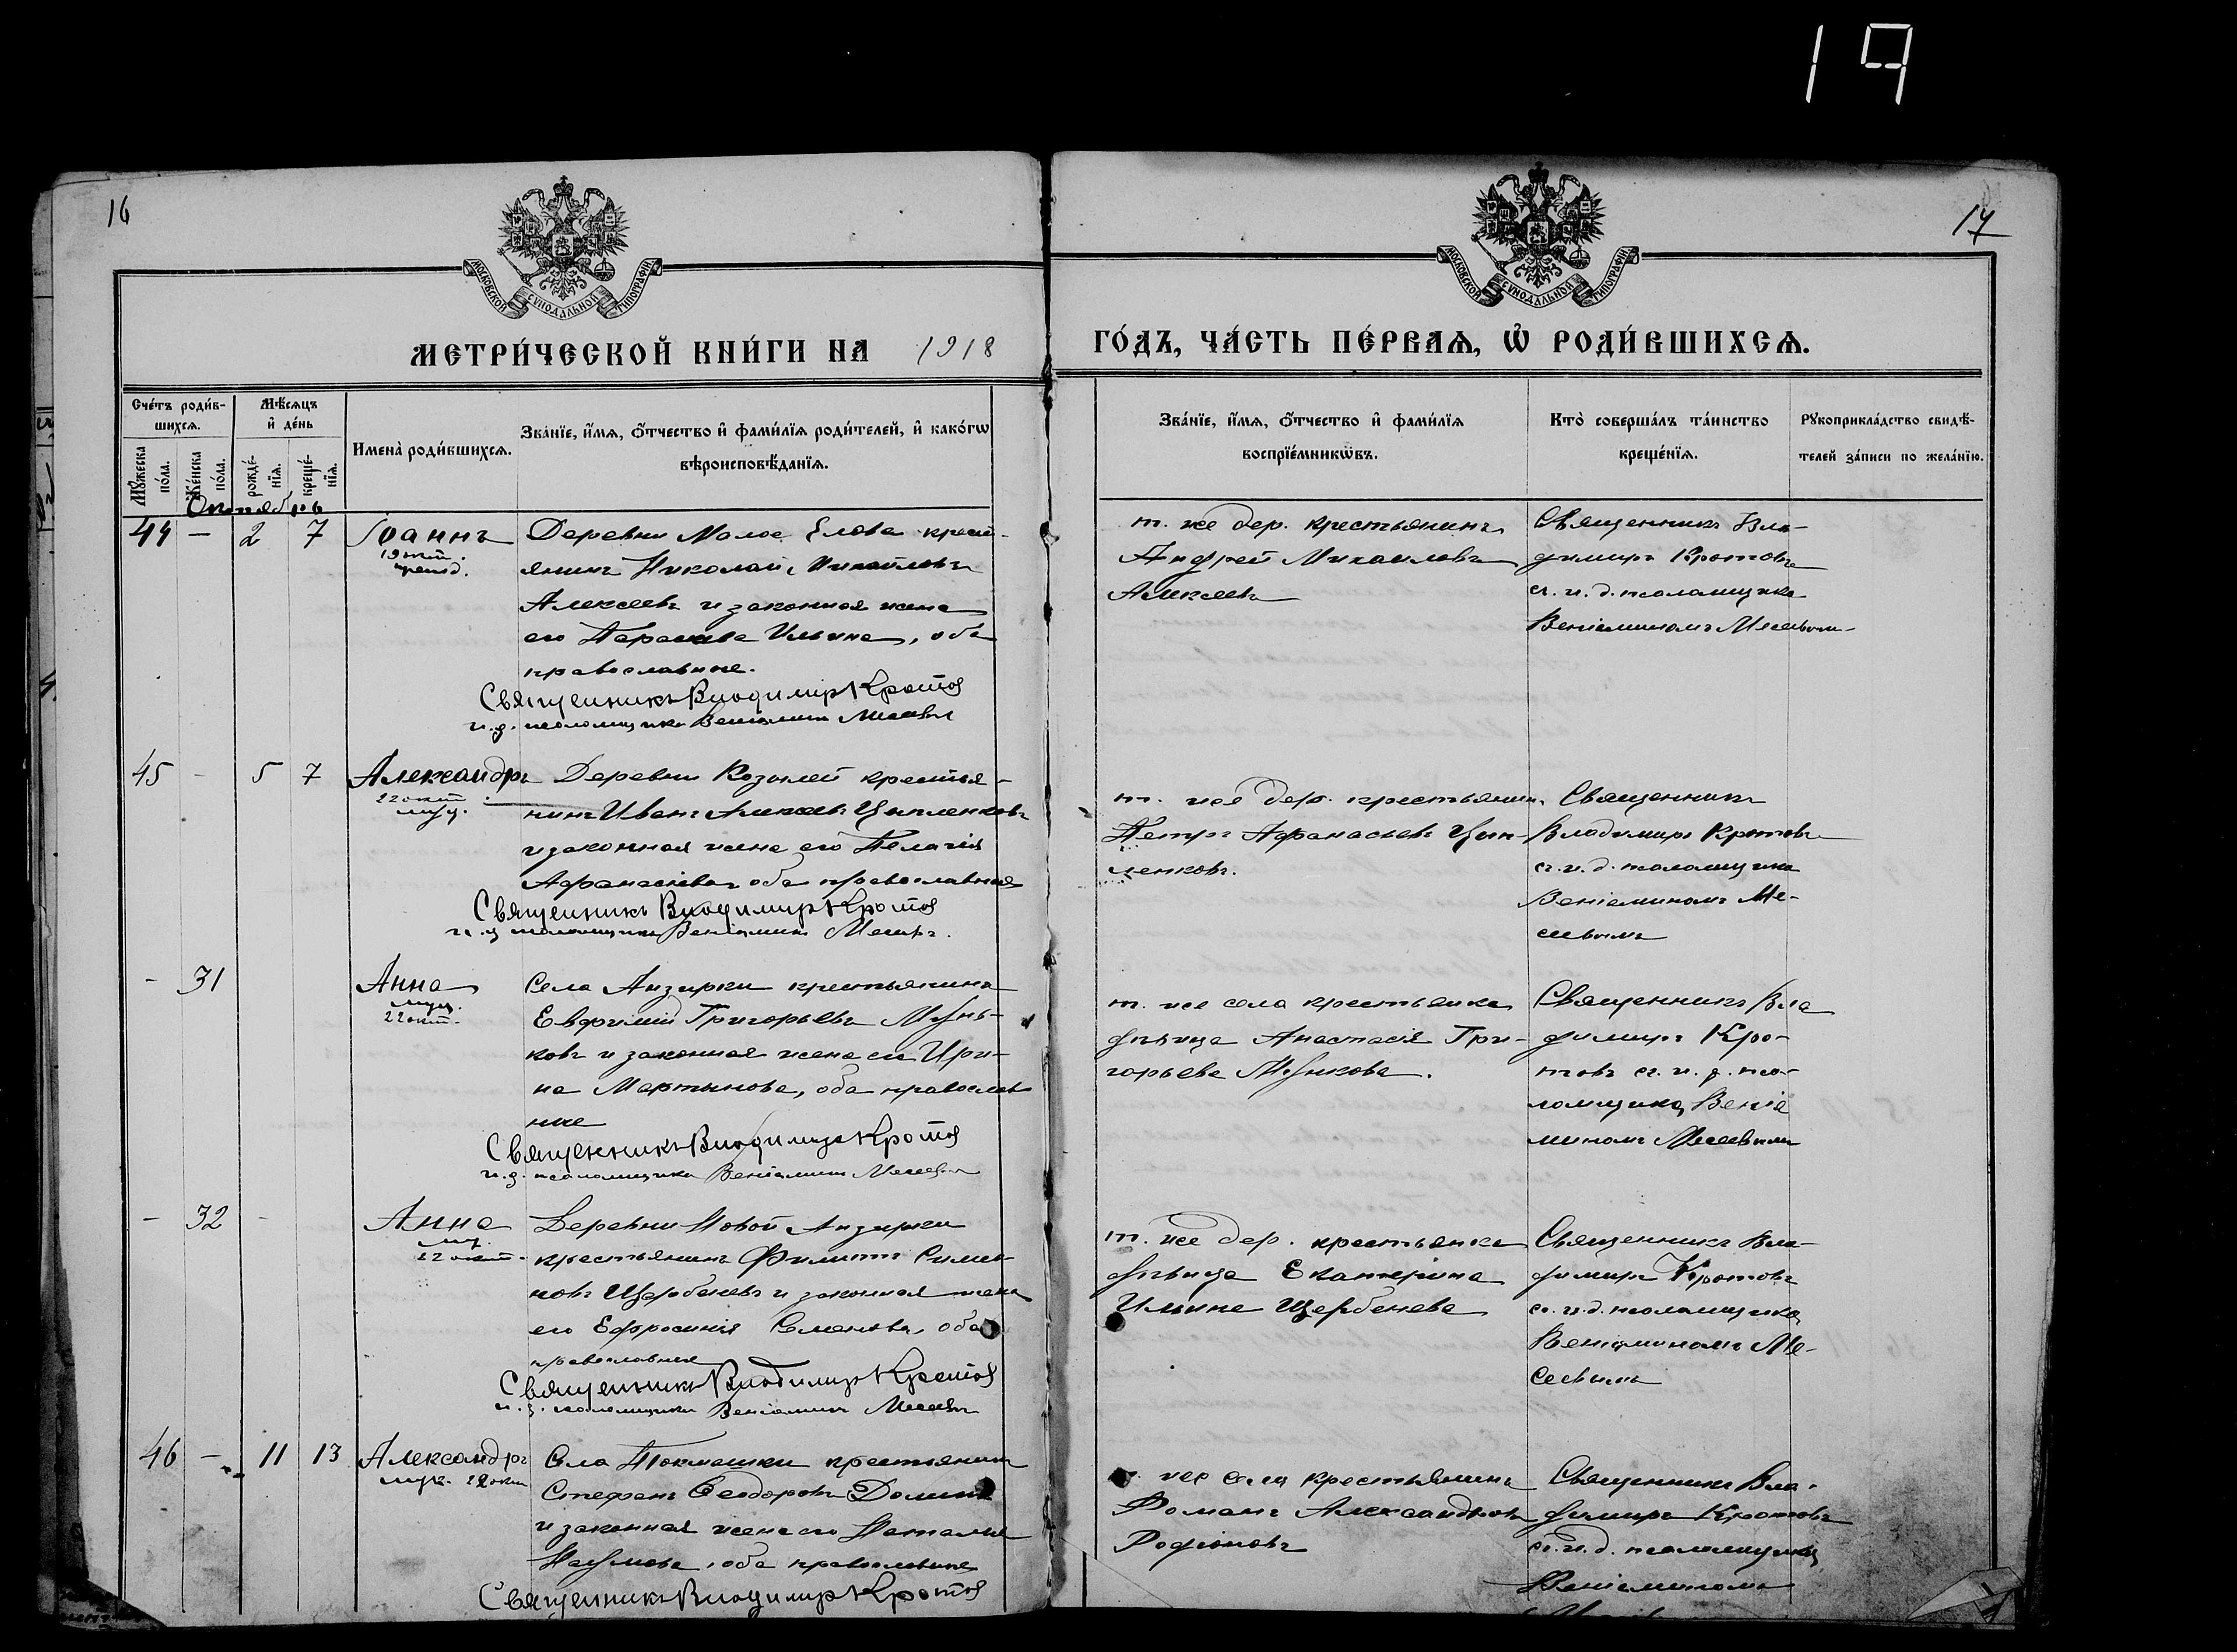 19
16
МОСКОВСКОЙ СѴНОДАЛЬНОЙ ТИПОГРАФІИ
МЕТРИ́ЧЕСКОЙ КНИ́ГИ НА 1918
Сче́тъ роди́в-
шихсѧ.
Мѣ́сѧцъ
и҆ де́нь
Мꙋ́жеска по́ла.
Же́нска по́ла.
рожде́-
нїѧ.
креще́-
нїѧ.
Имена̀ роди́вшихсѧ.
Зва́нїе, и҆́мѧ, ѻ҆́тчество и҆ фами́лїѧ роди́телей, и҆ како́гѡ
вѣроисповѣ́данїѧ.
Октябрь
44 – 2 7 Іоаннъ Деревни Малое Елова крест-
19 окт.
янинъ Николай Михайловъ
Алексеевъ и законная жена
его Параскева Ильина, оба
православные.
Священникъ Владимір Кротов
и. д. псаломщика Веніамин
45 - 5 7 Александръ Деревни крестья-
22 окт
муч.
нинъ Иванъ Алексеевъ Цыпленковъ
и законная жена его Пелагія
Афанасіева оба православные
Священникъ Владимір Кротов
и. д. псаломщика Веніамин
- 31 Анна Села Анзирки крестьянинъ
муч.
22 окт.
Евфимій Григорьевъ
ковъ и законная жена его Ири-
на Мартынова, оба православ
ные
Священникъ Владимір Кротов
и. д. псаломщика Веніамин
- 32 - Анна Деревни Новой Анзирки
муч.
22 окт.
крестьянинъ Филиппъ
новъ Щербеневъ и законная жена
его Ефросинія Семенова, оба
православные
Священникъ Владимір Кротов
и. д. псаломщика Веніаминъ
46 – 11 13 Александръ Села крестьянинъ
муч. 22 окт
Стефанъ Ѳеодоровъ
и законная жена его Наталія
Наумова, оба православные
Священникъ Владимір Кротов
17
МОСКОВСКОЙ СѴНОДАЛЬНОЙ ТИПОГРАФІИ
ГО́ДЪ, ЧА́СТЬ ПЕ́РВАѦ, Ѽ РОДИ́ВШИХСѦ.
Зва́нїе, и҆́мѧ, ѻ҆́тчество и҆ фами́лїѧ
воспрїе́мникѡвъ.
Кто̀ соверша́лъ та́инство
креще́нїѧ.
Рꙋкоприкла́дство свидѣ́-
телей за́писи по жела́нїю.
т. же дер. крестьянинъ
Андрей Михаиловъ
Алексеевъ
Священникъ Вла-
димиръ Кротовъ
съ и. д. псаломщика
Веніаминомъ
т. же дер. крестьянин
Петръ Афанасьевъ Цып-
ленковъ.
Священникъ
Владимиръ Кротовъ
съ и. д. псаломщика
Веніаминомъ Ме-
севымъ
т. же села крестьянка
дѣвица Анастасія Гри-
горьева
Священникъ Вла
димиръ Кро-
товъ съ и. д. пса-
ломщика Веніа
миномъ
т. же дер. крестьянка
дѣвица Екатерина
Ильина Щербенева
Священникъ Вла-
димиръ Кротовъ
съ и. д. псаломщика
Веніаминомъ Ме-
севымъ
же села крестьянинъ
Романъ Александровъ
Родіоновъ
Священникъ Вла-
димиръ Кротовъ
съ и. д. псаломщика
Веніаминомъ